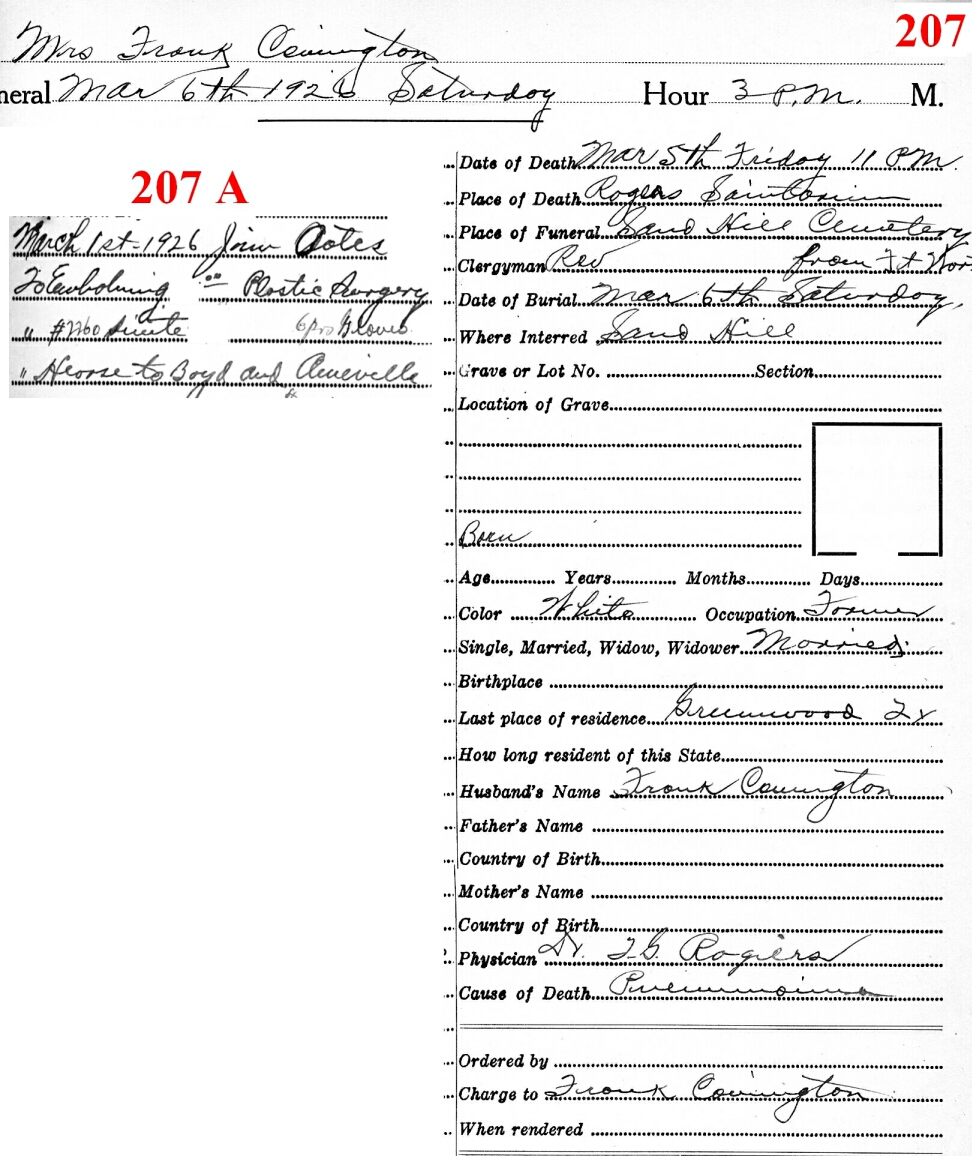 207
Mrs Frank Covington
neral Mar 6th 1926 Saturday Hour 3 P.M. M.
207 A
March 1st - 1926 Jim
To Embolming " Plastic Surgery
" #2760 Suite 6 Pro Gloves
" Hearse to Boyd and
Date of Death Mar 5th Friday 11 PM
Place of Death Rogers
Place of Funeral Sand Hill Cemetery
Clergyman Rev from Ft Wor
Date of Burial Mar 6th Saturday,
Where Interred Sand Hill
Grave or Lot No. Section
Location of Grave
Born
Age Years Months Days
Color White Occupation Farmer
Single, Married, Widow, Widower Married
Birthplace
Last place of residence Greenwood Tx
How long resident of this State
Husband's Name Frank Covington
Father's Name
Country of Birth
Mother's Name
Country of Birth
Physician Dr. T.G. Rogers
Cause of Death
Ordered by
Charge to Frank Covington
When rendered